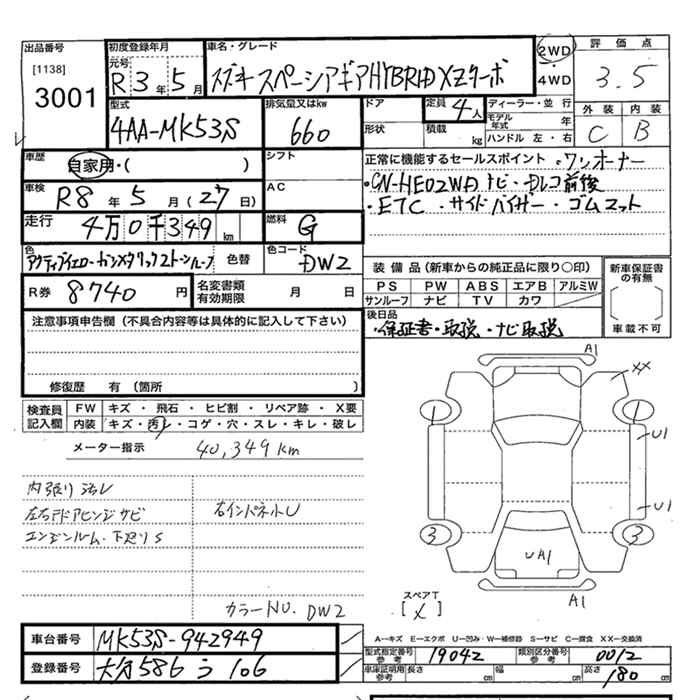 出品番号 初度登録年月 車名・グレード 2WD 評価点
[1138] 元号 R3年5月 スズキ スペーシアギアHYBRID XZターボ ・4WD 3.5
3001
型式 排気量又はkw ドア 定員 4人 ディーラー・並行 外装 内装
4AA-MK53S 660 形状 積載 kg モデル年式 年 ハンドル 左・右 C B
車歴 自家用・( ) シフト 正常に機能するセールスポイント ・ワンオーナー
車検 R8年5月(27日) AC ・GN-HE02WD ナビ・Dレコ前後
走行 4万0千349km 燃料 G ・ETC ・サイドバイザー・ゴムマット
色 色替 色コード DW2 装備品(新車からの純正品に限り○印) 新車保証書の有無
PS PW ABS エアB アルミW
R券 8740円 名変書類有効期限 月 日 サンルーフ ナビ TV カワ
注意事項申告欄(不具合内容等は具体的に記入して下さい) 後日品 車載不可
・保証書・取説・ナビ取説
修復歴 有 (箇所 )
検査員記入欄 FW キズ・飛石・ヒビ割・リペア跡・X要
内装 キズ・汚レ・コゲ・穴・スレ・キレ・破レ
メーター指示 40,349km
A1
XX
1 1
U1
U1
3 3
UA1
A1
内張り汚レ
左右ドアヒンジサビ 右インパネキU
エンジンルーム・下廻りS
スペアT
[X]
カラーNO. DW2
車台番号 MK53S-942949 A―キズ E―エクボ U―凹み・W―補修跡 S―サビ C―腐食 XX―交換済
登録番号 大分586う106 型式指定番号参考 19042 類別区分番号参考 0012
車庫証明用参考 長さ cm 幅 cm 高さ 180cm